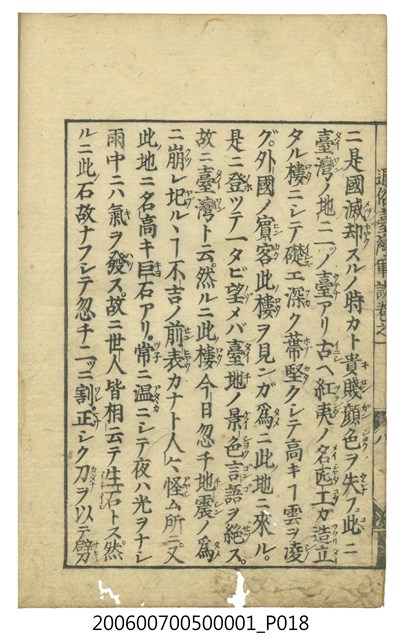 通俗臺灣軍談卷之一
八
ニ是國滅却スルノ時カト貴賤顔色ヲ失フ此ニ
臺灣ノ地ニ一ノ臺アリ古ヘ紅夷ノ名匠工ガ造立
タル樓ニシテ礎エ深ク葺堅クシテ高キヿ雲ヲ凌
グ外國ノ賓客此樓ヲ見ンガ爲ニ此地ニ來ル。
是ニ登ツテ一タビ望メバ臺地ノ景色言語ヲ絶ス。
故ニ臺灣ト云然ルニ此樓今日忽チ地震ノ爲
ニ崩レ圮ルヽヿ不吉ノ前表カナト人々怪ム所ニ又
此地ニ名高キ巨石アリ常ニ温ニシテ夜ハ光ヲナシ
雨中ニハ氣ヲ發ス故ニ世人皆相云テ生石トス然
ルニ此石故ナフシテ忽チ二ツニ割正シク刀ヲ以テ劈
200600700500001_P018